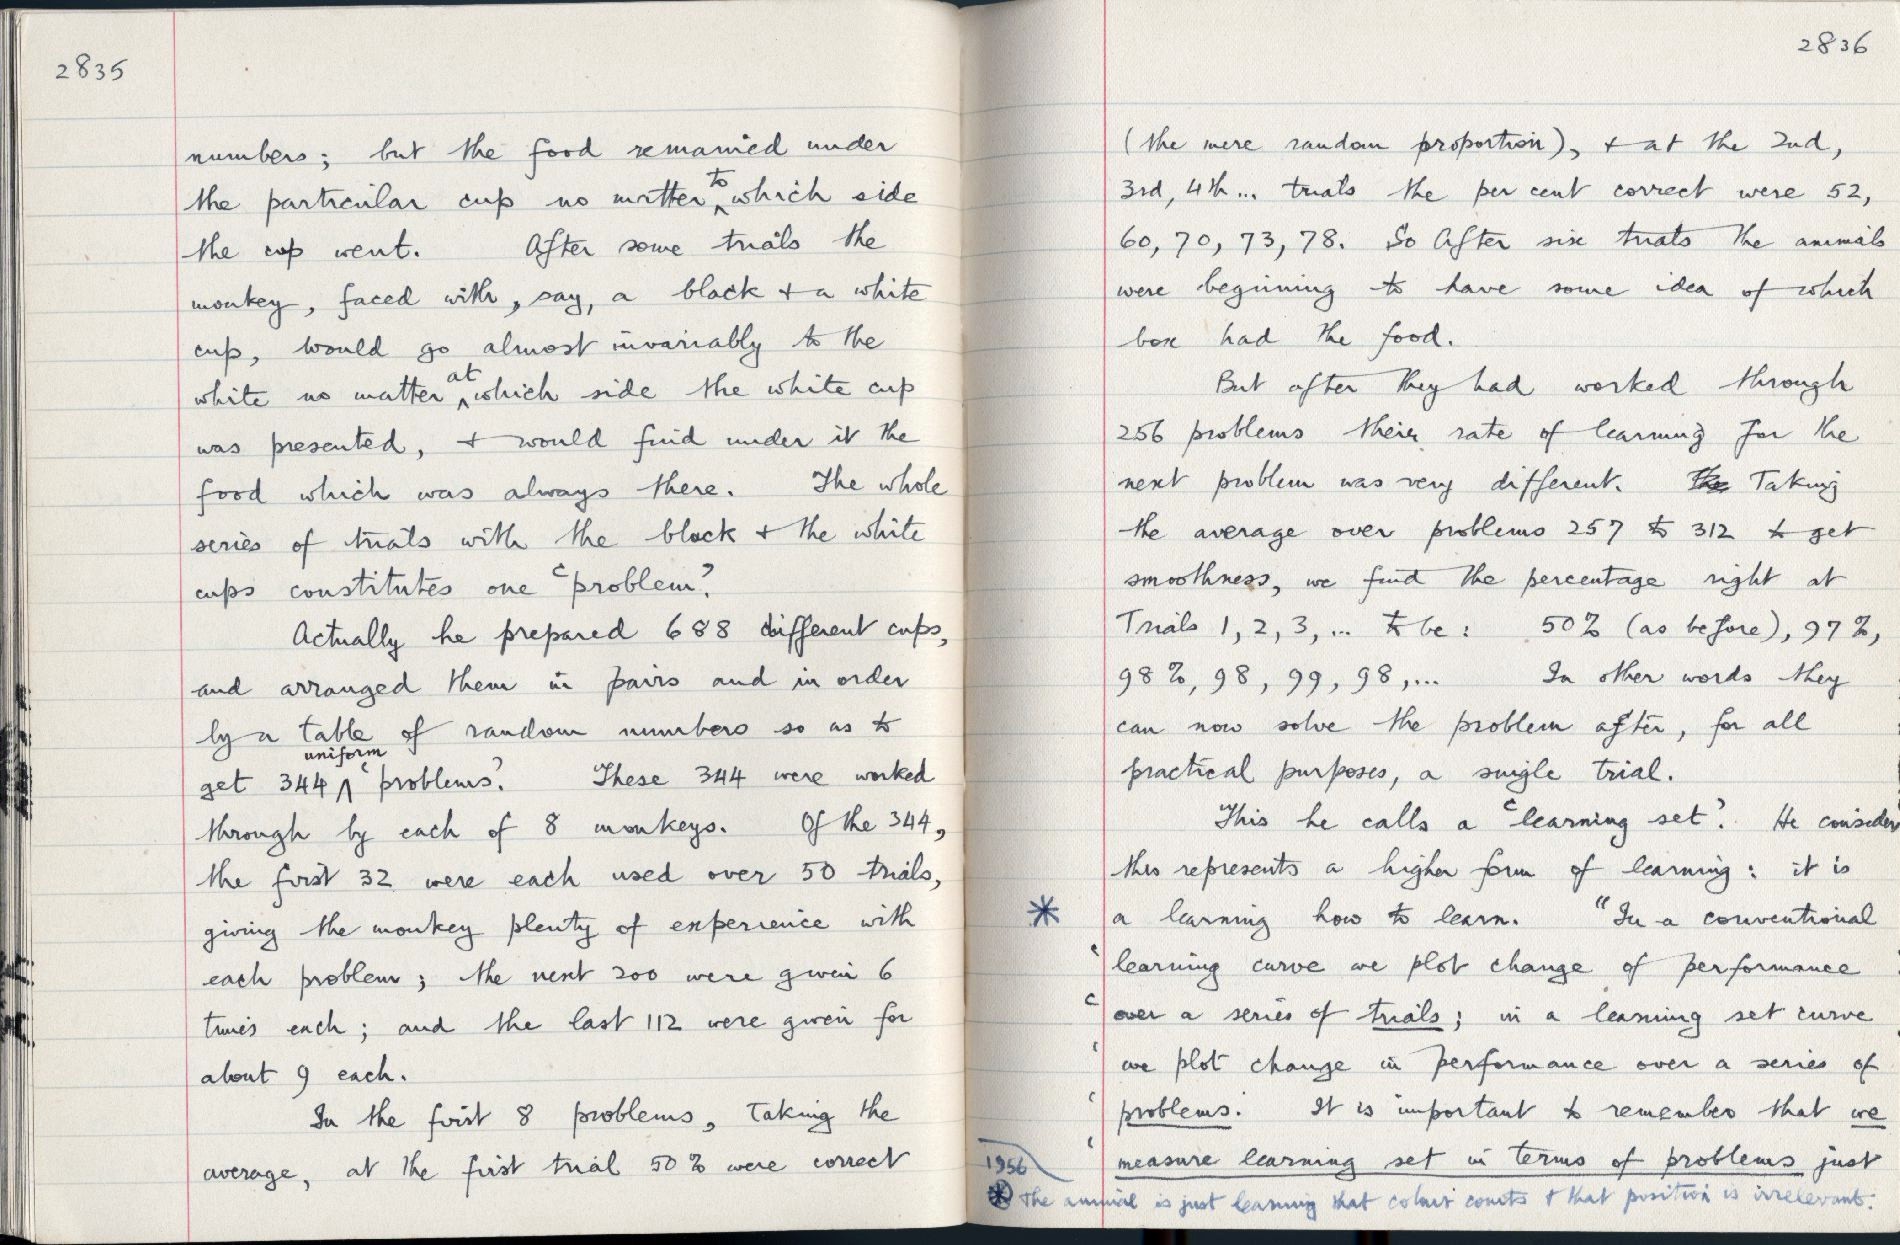 2835
numbers; but the food remained under
the particular cup no matter to which side
the cup went. After some trials the
monkey, faced with, say, a black & a white
cup, would go almost invariably to the
white no matter at which side the white cup
was presented, & would find under it the
food which was always there. The whole
series of trials with the black & the white
cups constitutes one 'problem'.
Actually he prepared 688 different cups,
and arranged them in pairs and in order
by a table of random numbers so as to
get 344 uniform 'problems'. These 344 were worked
through by each of 8 monkeys. Of the 344,
the first 32 were each used over 50 trials,
giving the monkey plenty of experience with
each problem; the next 200 were given 6
times each; and the last 112 were given for
about 9 each.
In the first 8 problems, taking the
average, at the first trial 50% were correct
2836
(the mere random proportion), & at the 2nd,
3rd, 4th... trials the per cent correct were 52,
60, 70, 73, 78. So after six trials the animals
were beginning to have some idea of which
box had the food.
But after they had worked through
256 problems their rate of learning for the
next problem was very different. The Taking
the average over problems 257 to 312 to get
smoothness, we find the percentage right at
Trials 1, 2, 3, ... to be: 50% (as before), 97%,
98%, 98, 99, 98, ... In other words they
can now solve the problem after, for all
practical purposes, a single trial.
This he calls a 'learning set'. He consider
this represents a higher form of learning: it is
* a learning how to learn. "In a conventional
' learning curve we plot change of performance
' over a series of trials; in a learning set curve
' we plot change in performance over a series of
' problems. It is important to remember that we
' measure learning set in terms of problems just
1956
* The animal is just learning that colour counts & that position is irrelevant.